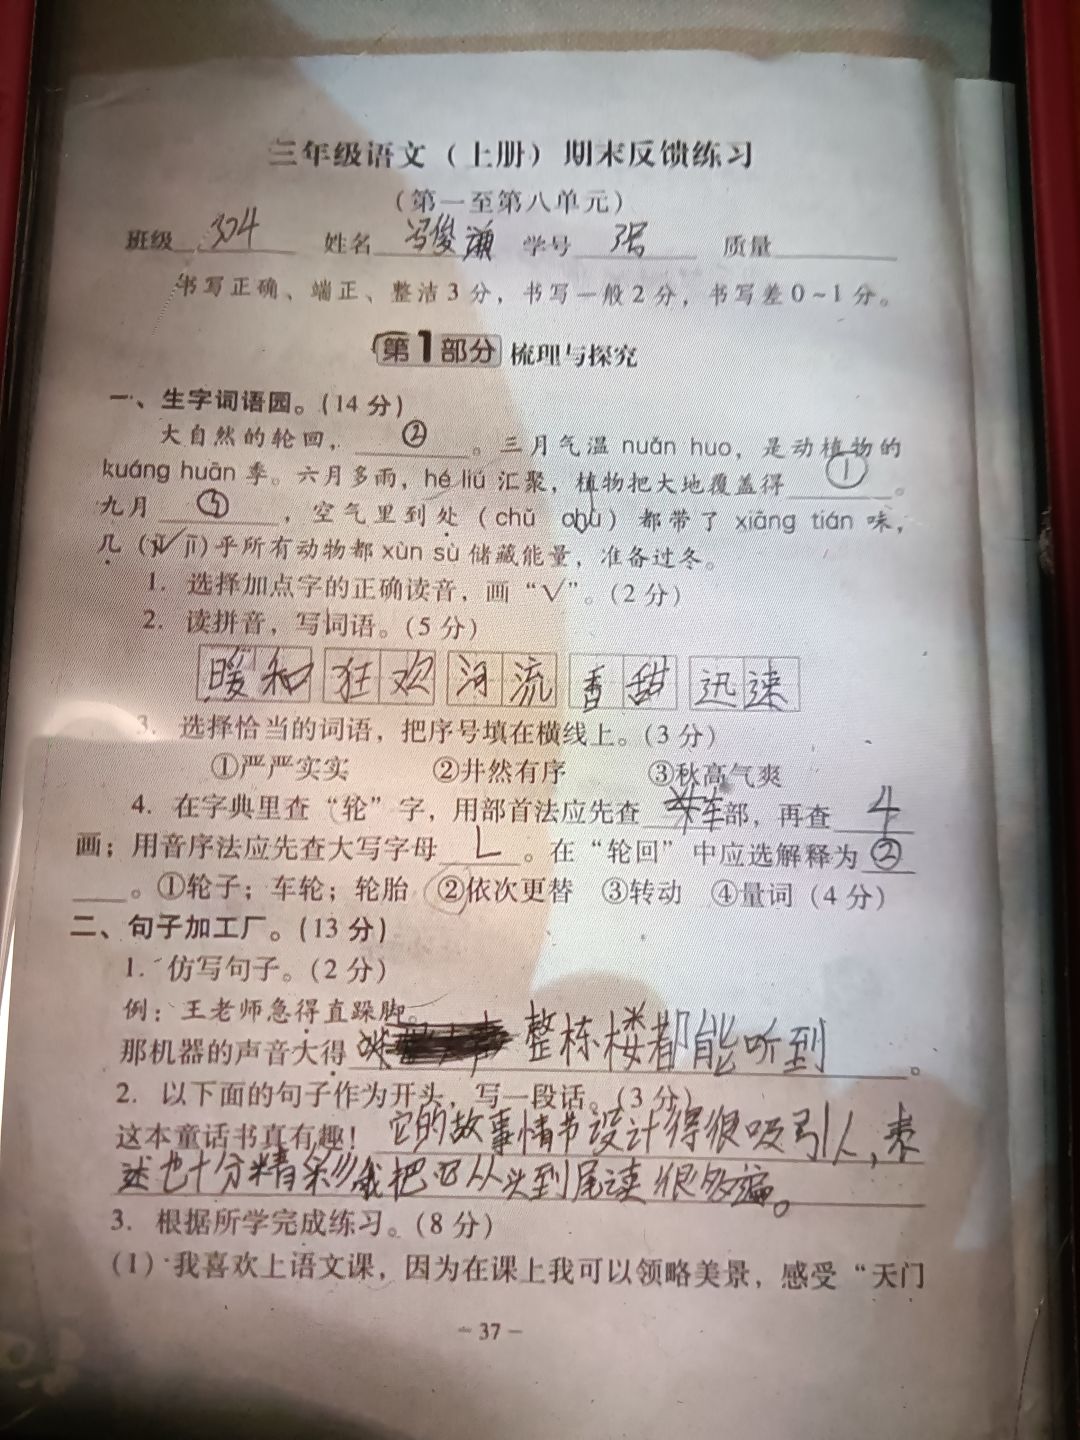 三年级语文（上册）期末反馈练习
（第一至第八单元）
班级 304 姓名 冯俊 学号 质量
书写正确、端正、整洁3分，书写一般2分，书写差0~1分。
第1部分 梳理与探究
一、生字词语园。(14分)
大自然的轮回，②。三月气温 nuǎn huo，是动植物的
kuáng huān 季。六月多雨，hé liú 汇聚，植物把大地覆盖得①。
九月③，空气里到处（chǔ chù）都带了 xiāng tián 味，
几（jī jǐ)乎所有动物都 xùn sù 储藏能量，准备过冬。
1. 选择加点字的正确读音，画“√”。(2分)
2. 读拼音，写词语。(5分)
暖和 狂欢 河流 香甜 迅速
3. 选择恰当的词语，把序号填在横线上。(3分)
①严严实实 ②井然有序 ③秋高气爽
4. 在字典里查“轮”字，用部首法应先查车部，再查4
画；用音序法应先查大写字母L。在“轮回”中应选解释为②
。①轮子；车轮；轮胎 ②依次更替 ③转动 ④量词 (4分)
二、句子加工厂。(13分)
1. 仿写句子。(2分)
例：王老师急得直跺脚。
那机器的声音大得整栋楼都能听到。
2. 以下面的句子作为开头，写一段话。(3分)
这本童话书真有趣！它的故事情节设计得很吸引人，表
述也十分精彩，我把它从头到尾读很多遍。
3. 根据所学完成练习。(8分)
(1) 我喜欢上语文课，因为在课上我可以领略美景，感受“天门
- 37 -